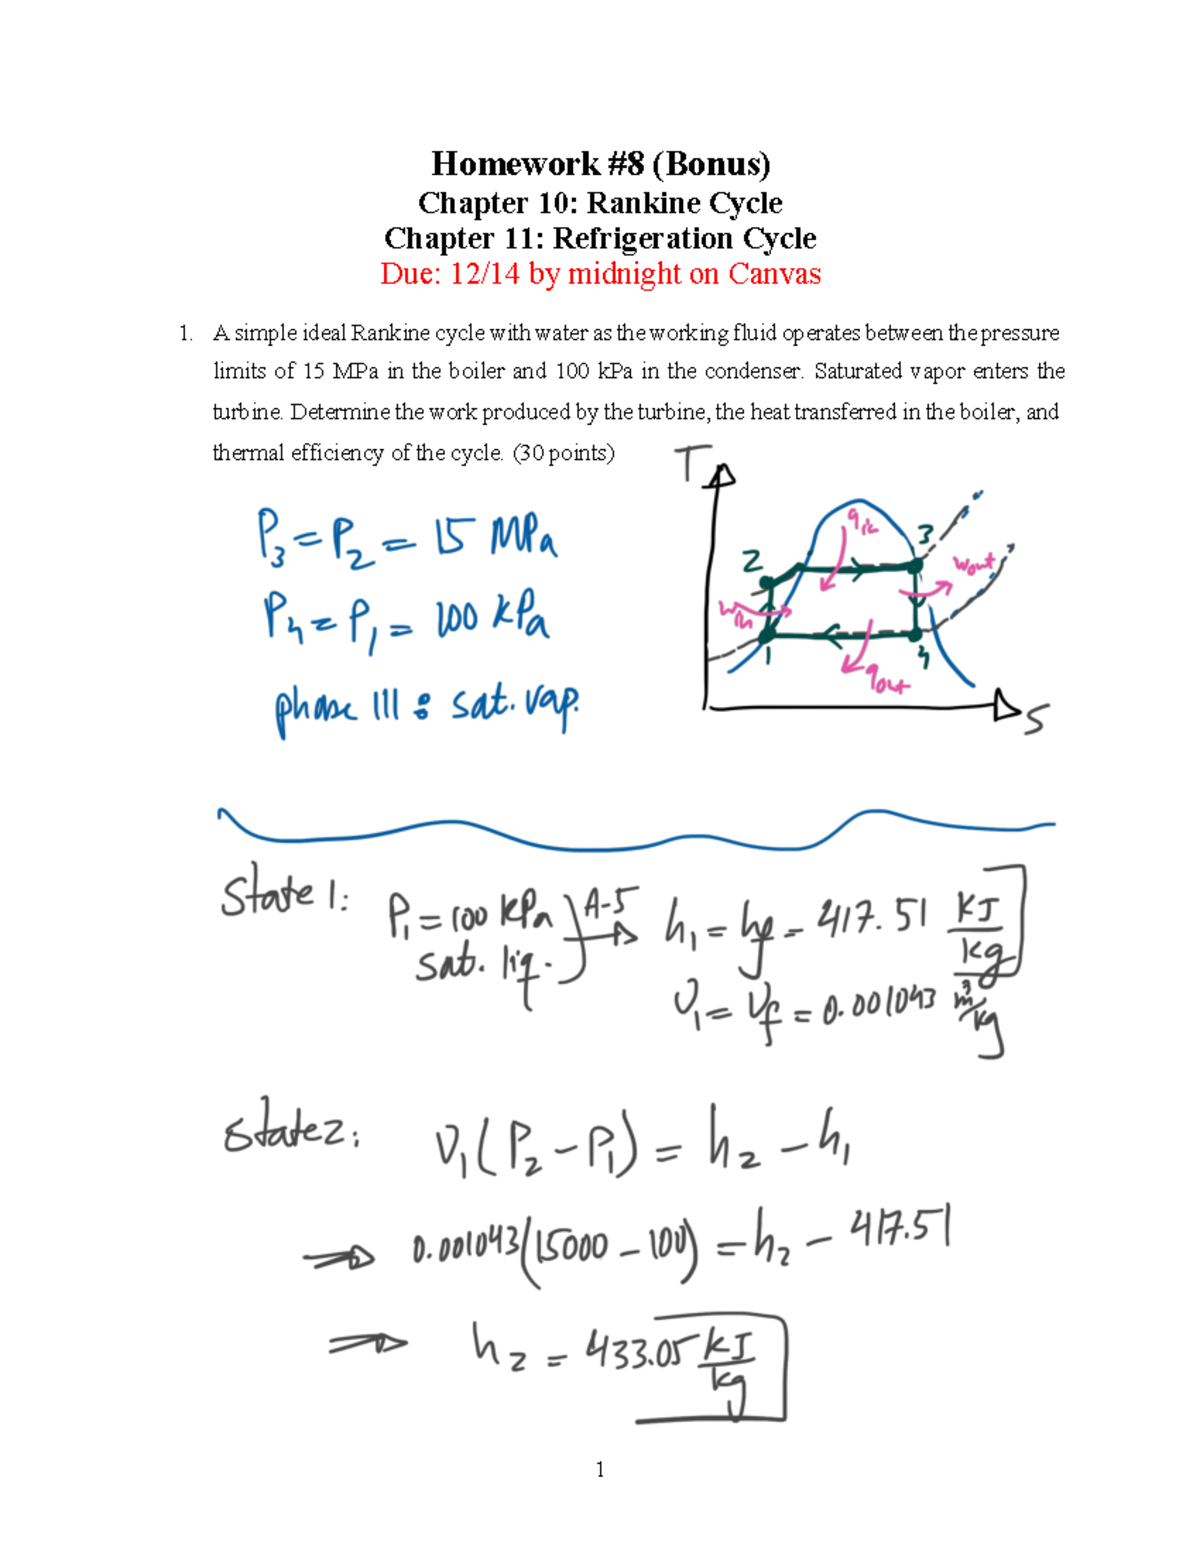 Homework #8 (Bonus)
Chapter 10: Rankine Cycle
Chapter 11: Refrigeration Cycle
Due: 12/14 by midnight on Canvas
1. A simple ideal Rankine cycle with water as the working fluid operates between the pressure
limits of 15 MPa in the boiler and 100 kPa in the condenser. Saturated vapor enters the
turbine. Determine the work produced by the turbine, the heat transferred in the boiler, and
thermal efficiency of the cycle. (30 points)
T
P₃ = P₂ = 15 MPa
P₄ = P₁ = 100 kPa
phase III : sat. vap.
qin
3
2
wout
win
1
4
qout
S
State 1: P₁ = 100 kPa A-5 h₁ = hf = 417.51 kJ/kg
sat. liq.
v₁ = vf = 0.001043 m³/kg
State 2: v₁(P₂ - P₁) = h₂ - h₁
⇒ 0.001043(15000 - 100) = h₂ - 417.51
⇒ h₂ = 433.05 kJ/kg
1